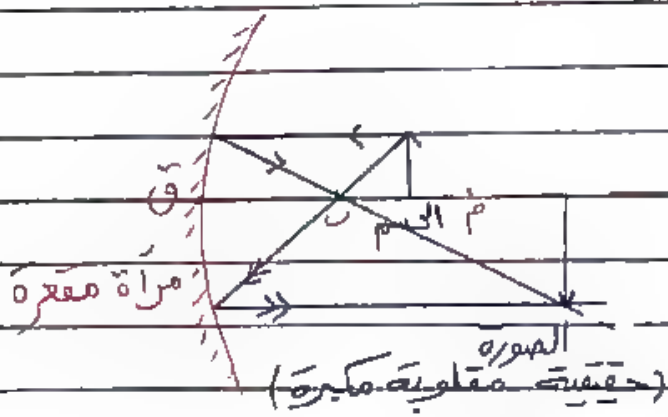 قَ
ن
الجسم
مَ
مرآة مقعرة
الصوره
(حقيقية مقلوبة مكبرة)